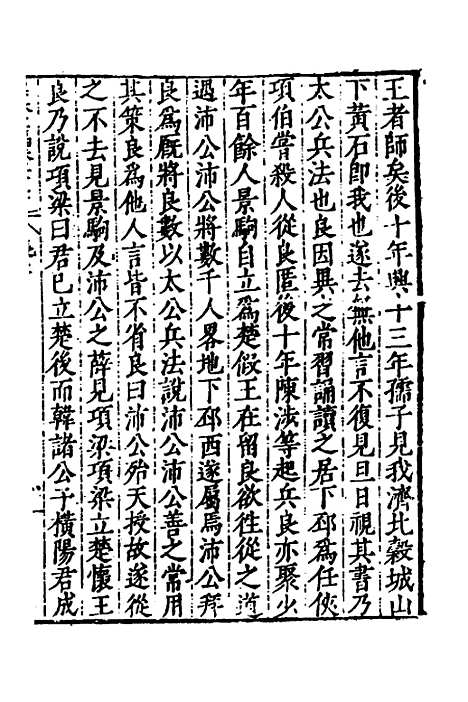 王者師矣後十年興十三年孺子見我濟北穀城山
下黃石即我也遂去無他言不復見旦日視其書乃
太公兵法也良因異之常習誦讀之居下邳爲任俠
項伯嘗殺人從良匿後十年陳涉等起兵良亦聚少
年百餘人景駒自立爲楚假王在留良欲往從之道
遇沛公沛公將數千人畧地下邳西遂屬焉沛公拜
良爲厩將良數以太公兵法說沛公沛公善之常用
其策良爲他人言皆不省良曰沛公殆天授故遂從
之不去見景駒及沛公之薛見項梁項梁立楚懷王
良乃說項梁曰君已立楚後而韓諸公子橫陽君成